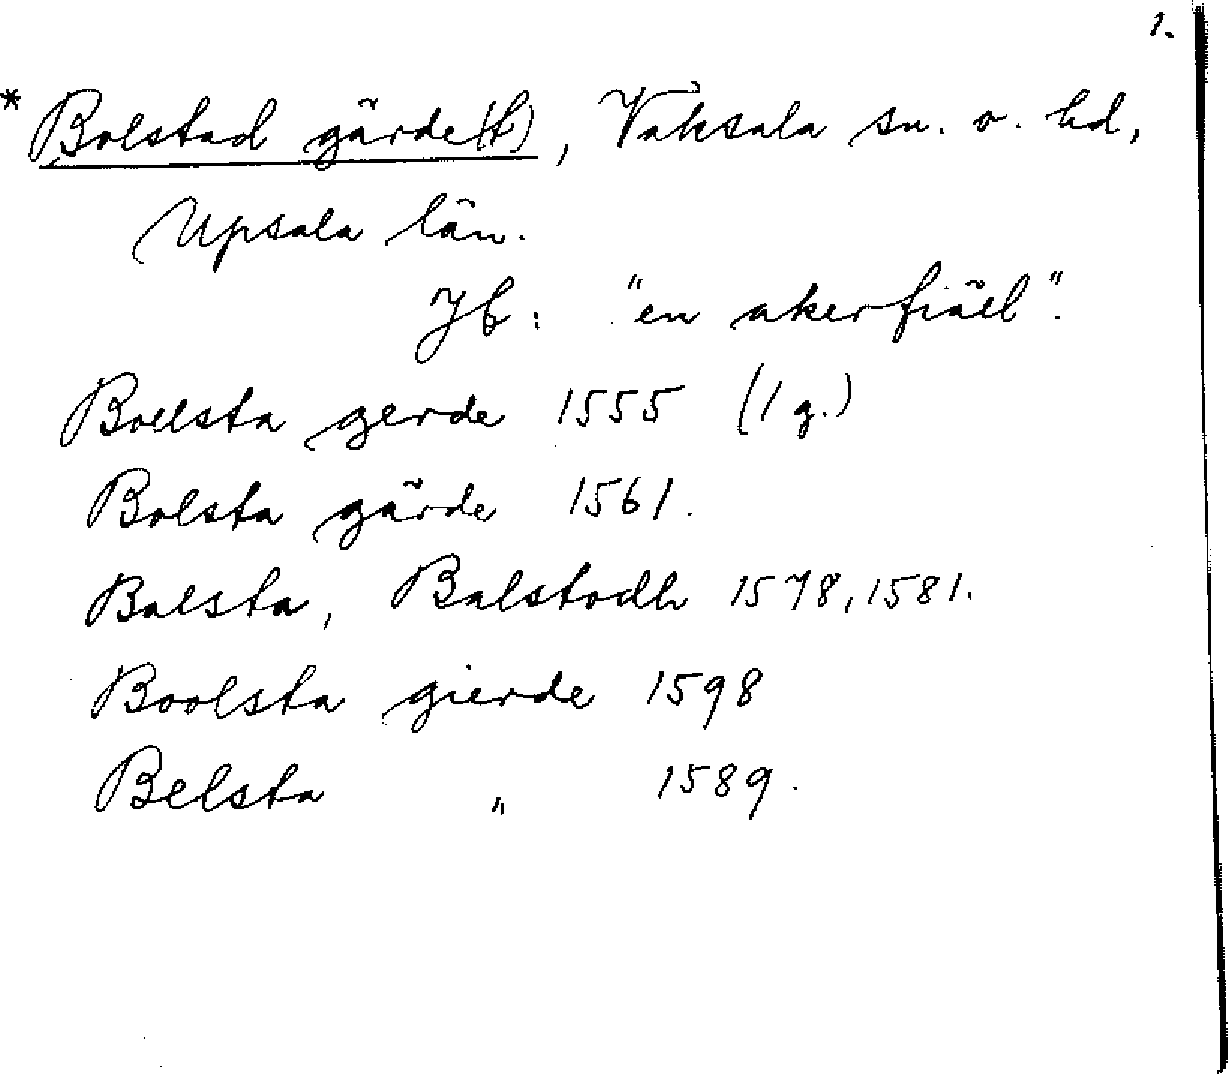 1.
* Bolstad gärde(t), Vaksala sn. o. hd,
Upsala län.
Jb: "en akerfiäll".
Bollsta gerde 1555 (1 g.)
Bolsta gärde 1561.
Balsta, Balstodh 1578, 1581.
Boolsta gierde 1598
Belsta " 1589.